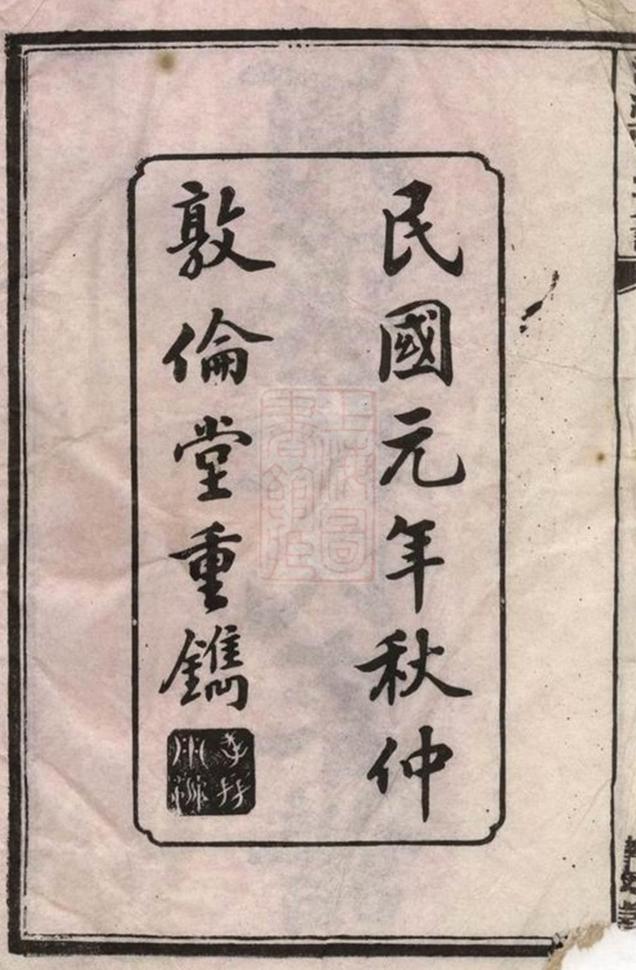 民國元年秋仲
敦倫堂重鐫